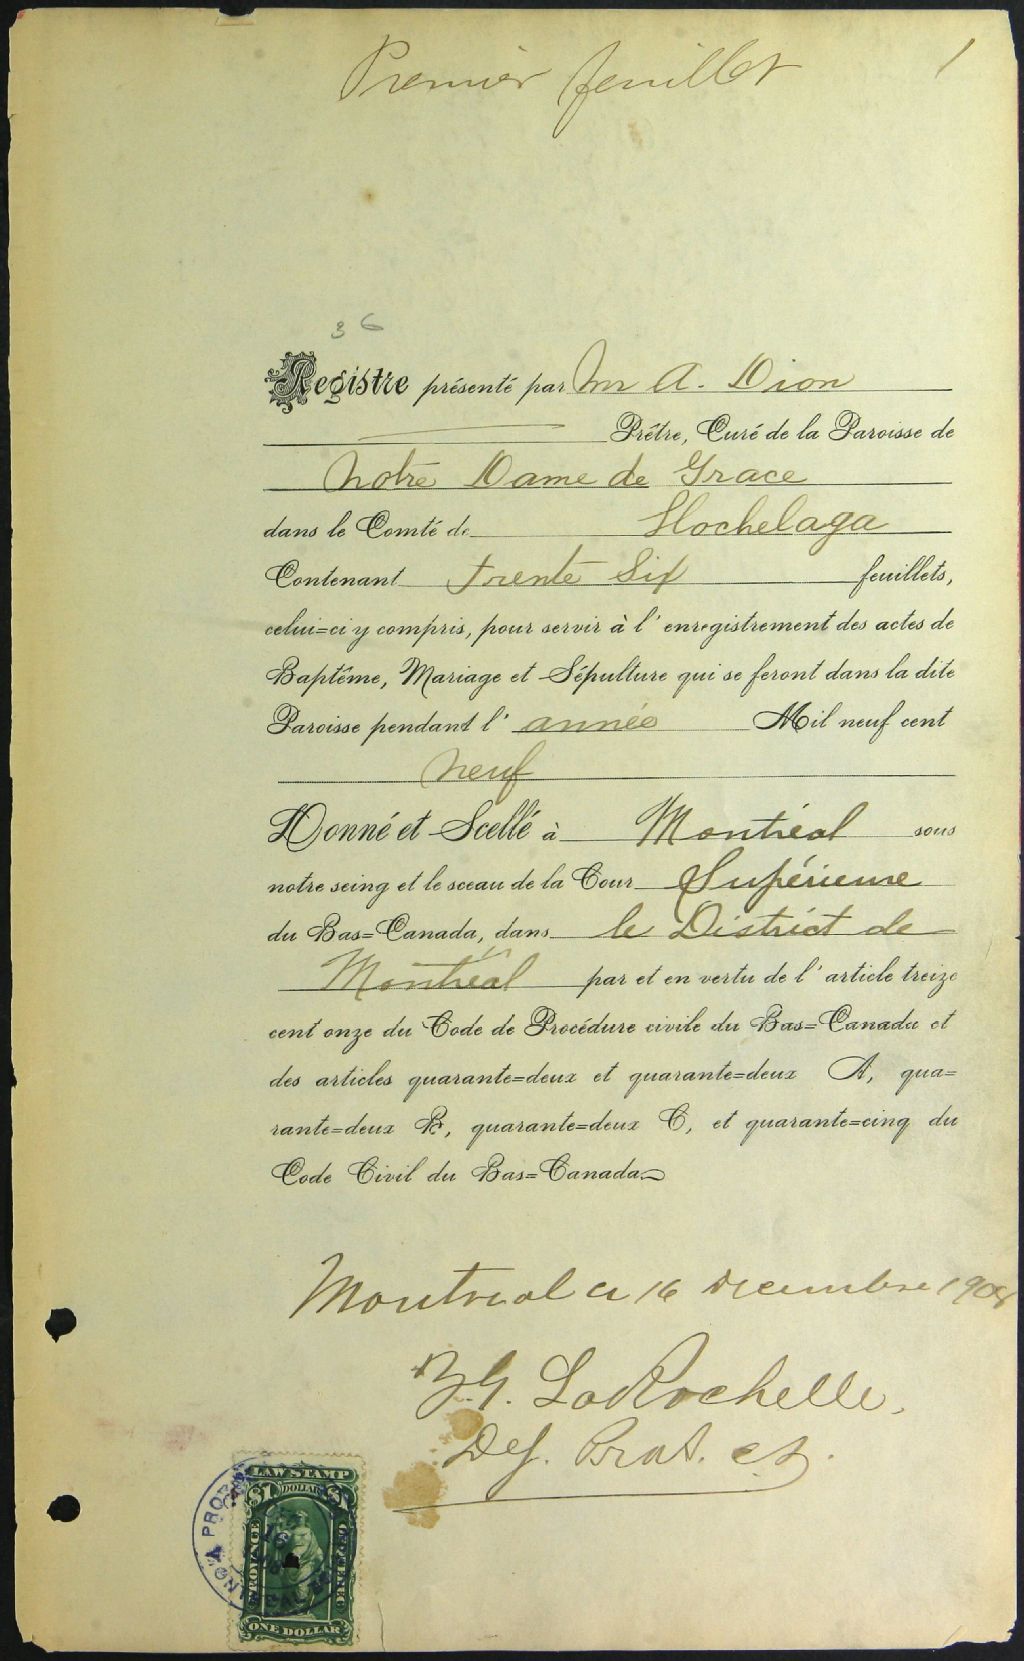 Premier feuillet 1
36
Registre présenté par Mr A. Dion
Prêtre, Curé de la Paroisse de
Notre Dame de Grace
dans le Comté de Hochelaga
Contenant trente six feuillets,
celui=ci y compris, pour servir à l'enregistrement des actes de
Baptême, Mariage et Sépulture qui se feront dans la dite
Paroisse pendant l'année Mil neuf cent
neuf
Donné et Scellé à Montréal sous
notre seing et le sceau de la Cour Supérieure
du Bas=Canada, dans le District de
Montréal par et en vertu de l'article treize
cent onze du Code de Procédure civile du Bas=Canada et
des articles quarante=deux et quarante=deux A, qua=
rante=deux B, quarante=deux C, et quarante=cinq du
Code Civil du Bas=Canada
Montreal ce 16 Decembre 1908
LaRochelle,
Dep. Prot. C.S.
LAW STAMP
$1 DOLLAR $1
PROVINCE QUEBEC
ONE DOLLAR